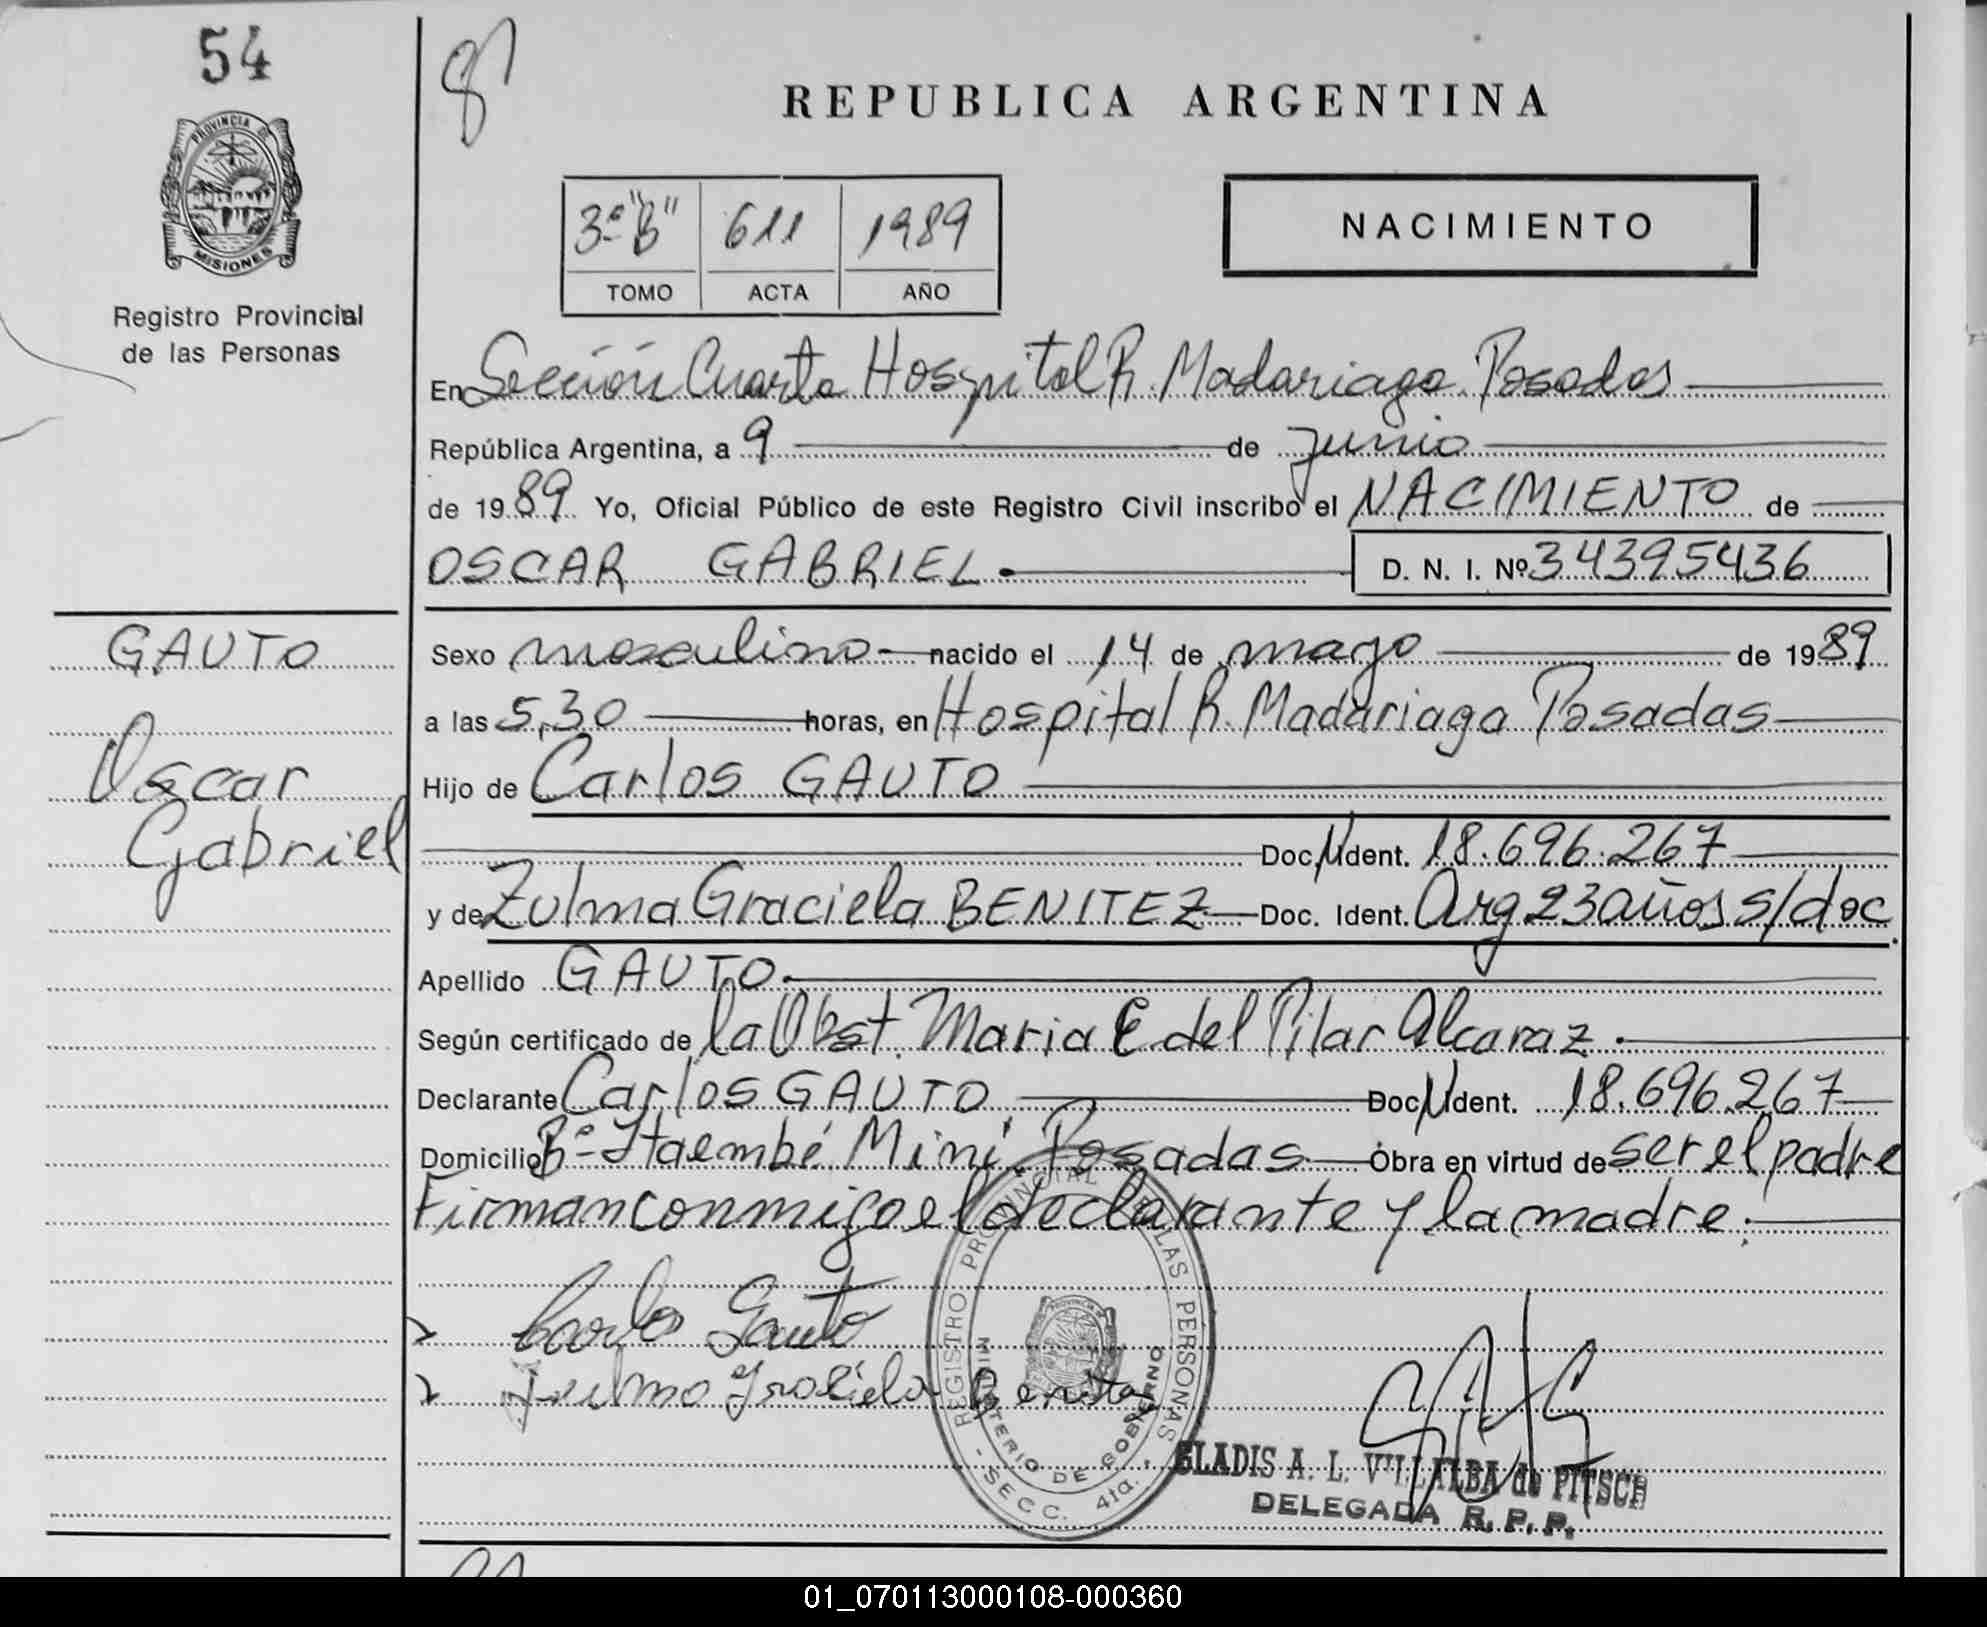 54
PROVINCIA DE
MISIONES
Registro Provincial
de las Personas
REPUBLICA ARGENTINA
3º "B" 611 1989
TOMO ACTA AÑO
NACIMIENTO
En Sección Cuarta Hospital R. Madariaga Posadas
República Argentina, a 9 de junio
de 1989 Yo, Oficial Público de este Registro Civil inscribo el NACIMIENTO de
OSCAR GABRIEL.
D. N. I. Nº 34395436
GAUTO
Oscar
Gabriel
Sexo masculino nacido el 14 de mayo de 1989
a las 5,30 horas, en Hospital R. Madariaga Posadas
Hijo de Carlos GAUTO
Doc. Ident. 18.696.267
y de Zulma Graciela BENITEZ Doc. Ident. Arg 23 años s/doc.
Apellido GAUTO.
Según certificado de la Obst. Maria E del Pilar Alcaraz.
Declarante Carlos GAUTO Doc. Ident. 18.696.267
Domicilio Bº Itaembé Miní. Posadas Obra en virtud de ser el padre
Firman conmigo el declarante y la madre.
Carlos Gauto
Zulma Graciela Benitez
REGISTRO PROVINCIAL DE LAS PERSONAS
MINISTERIO DE GOBIERNO
- SECC. 4ta. -
GLADIS A. L. VILLALBA de PITSCH
DELEGADA R. P. P.
01_070113000108-000360